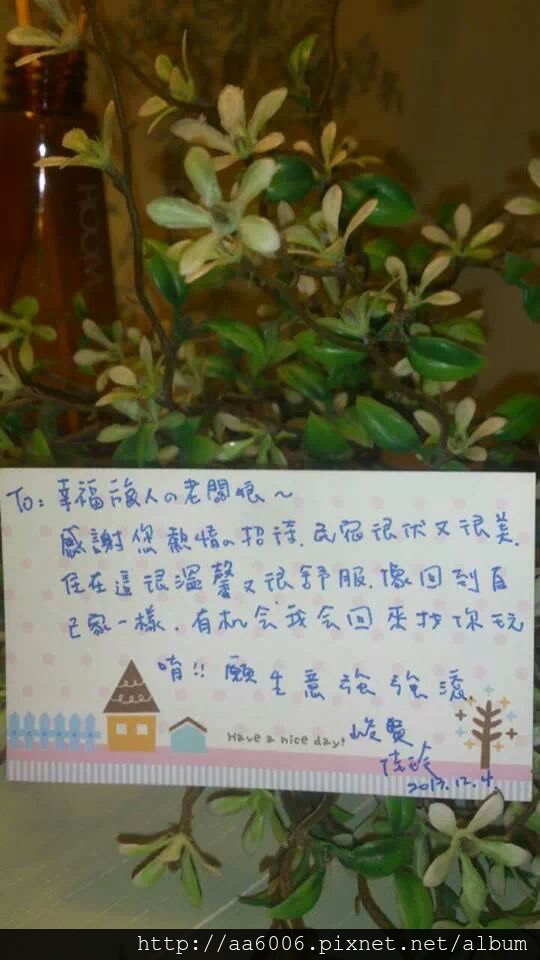 HOOM
To: 幸福旅人の老闆娘~
感謝您熱情の招待. 民宿很伏又很美.
住在這很溫馨又很舒服. 像回到自
己家一樣. 有机会我会回來找你玩
唷!! 願生意強強滾.
Have a nice day!
峻賢
2013.12.4.
http://aa6006.pixnet.net/album